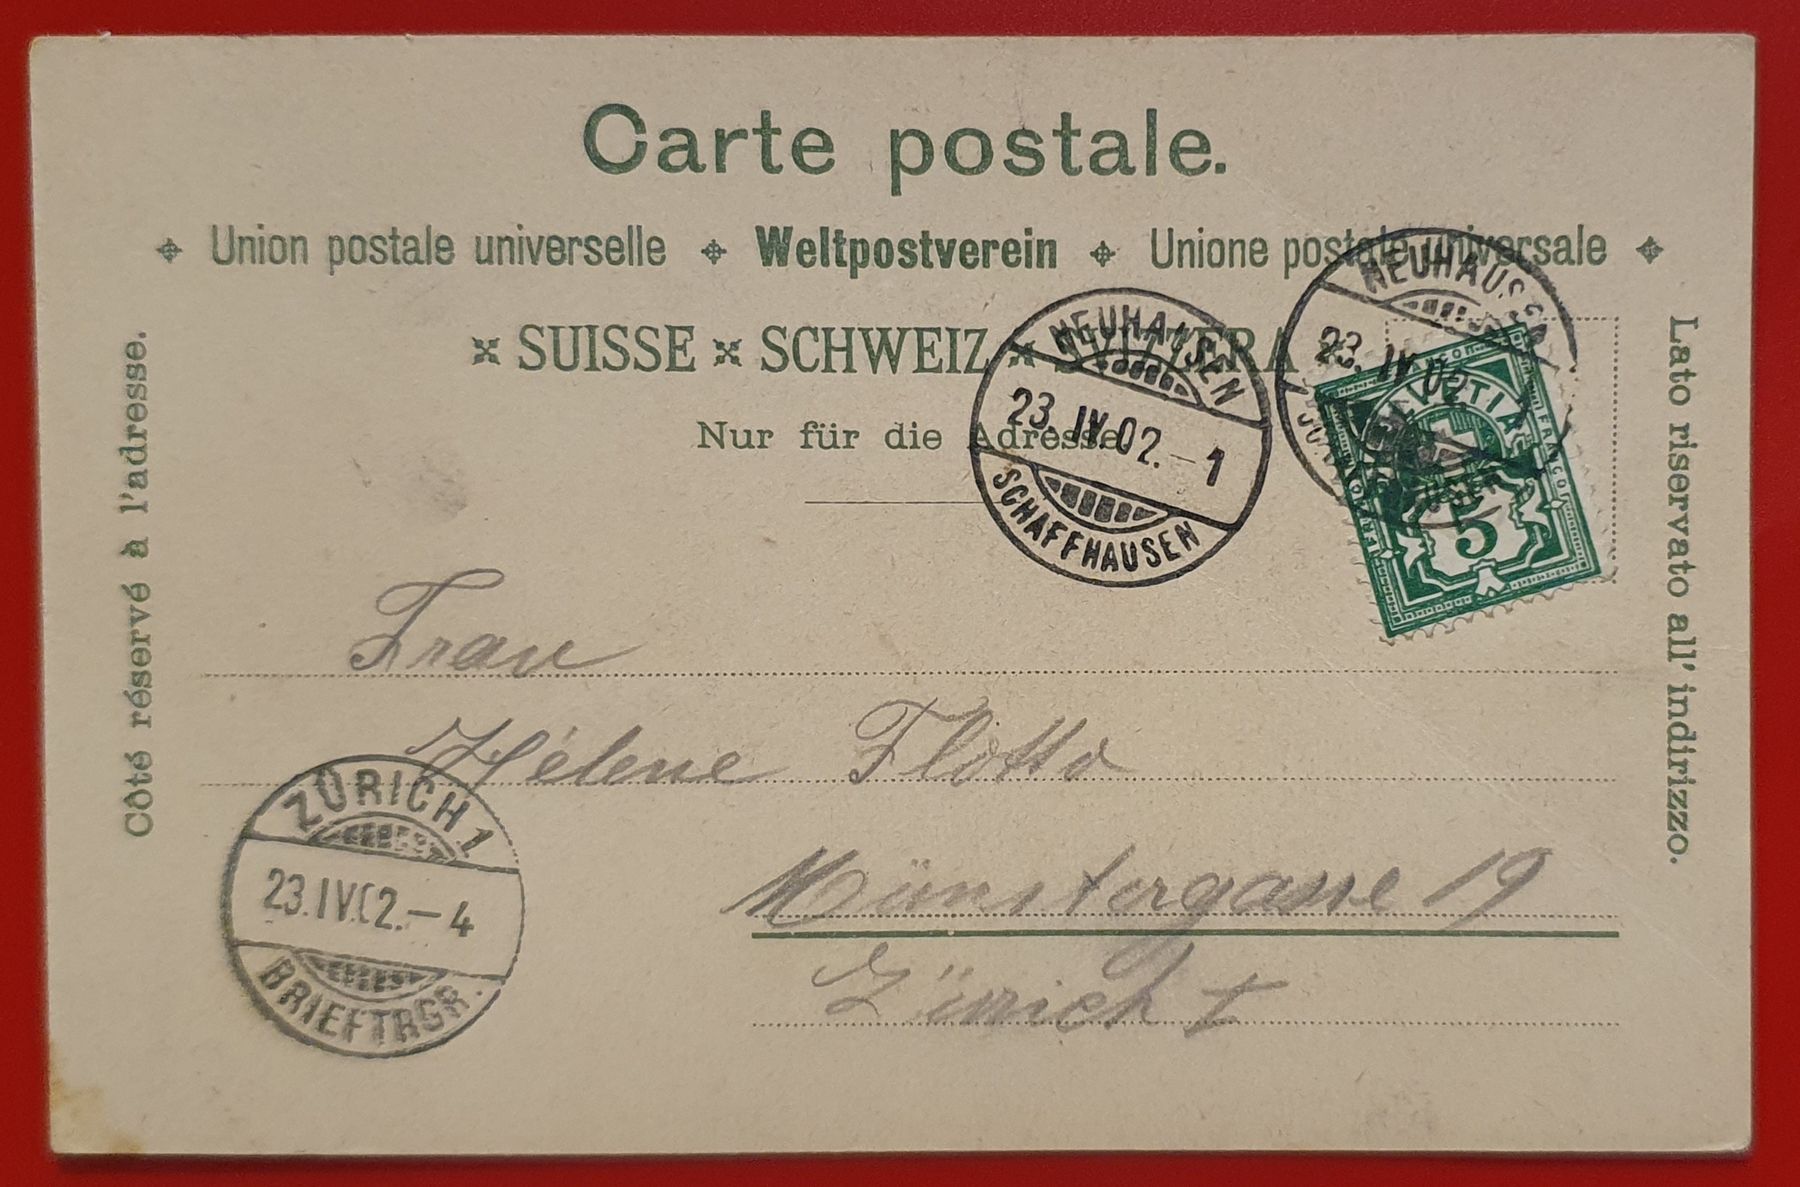 Carte postale.
Union postale universelle Weltpostverein Unione postale universale
SUISSE SCHWEIZ SVIZZERA
Nur für die Adresse
Côté réservé à l'adresse.
Lato riservato all' indirizzo.
NEUHAUSEN
23. IV 02. – 1
SCHAFFHAUSEN
23. IV 02
HELVETIA
FRANCO
5
Frau
Hélène Flotto
Münstergasse 19
Zürich I
ZÜRICH 1
23. IV. 02. – 4
BRIEFTRGR.